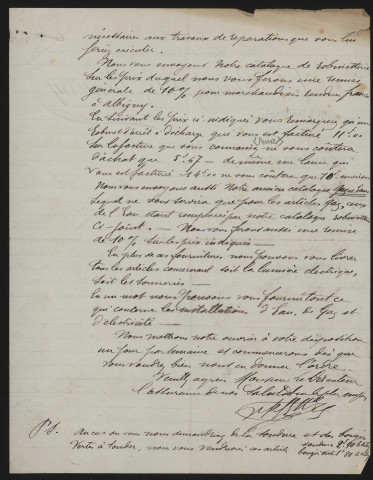 nécessaires aux travaux de réparations que vous lui
ferez exécuter.
Nous vous envoyons notre catalogue de robinetterie
sur les prix duquel nous vous ferons une remise
générale de 10% pour marchandises rendues franco
à Albigny.
En suivant les prix ci-indiqués vous remarquez qu'un
Robinet d'arrêt à décharge qui vous est facturé 11.00
sur la facture que vous ne vous coûtera
d'achat que 5.67 - de même un
vous est facturé ne vous coûtera que 10 environ
Nous vous envoyons aussi notre ancien catalogue
lequel ne vous servira que pour les articles Gaz, ceux
de l'Eau étant remplacés par notre catalogue robinetterie
ci-joint. - Nous vous ferons aussi une remise
de 10% sur les prix indiqués -
En plus de ces fournitures nous pouvons vous livrer
tous les articles concernant soit la lumière électrique,
soit les sonneries -
En un mot nous pouvons vous fournir tout ce
qui concerne les installations d'Eau, de Gaz et
d'électricité -
Nous mettons notre ouvrier à votre disposition
un jour par semaine et commencerons dès que
vous voudrez bien nous en donner l'ordre.
Veuillez agréer Monsieur le Directeur
l'assurance de nos salutations les plus
P.S. Au cas où vous nous demanderiez de la soudure et des bougies
à souder, nous vous vendrions ces articles